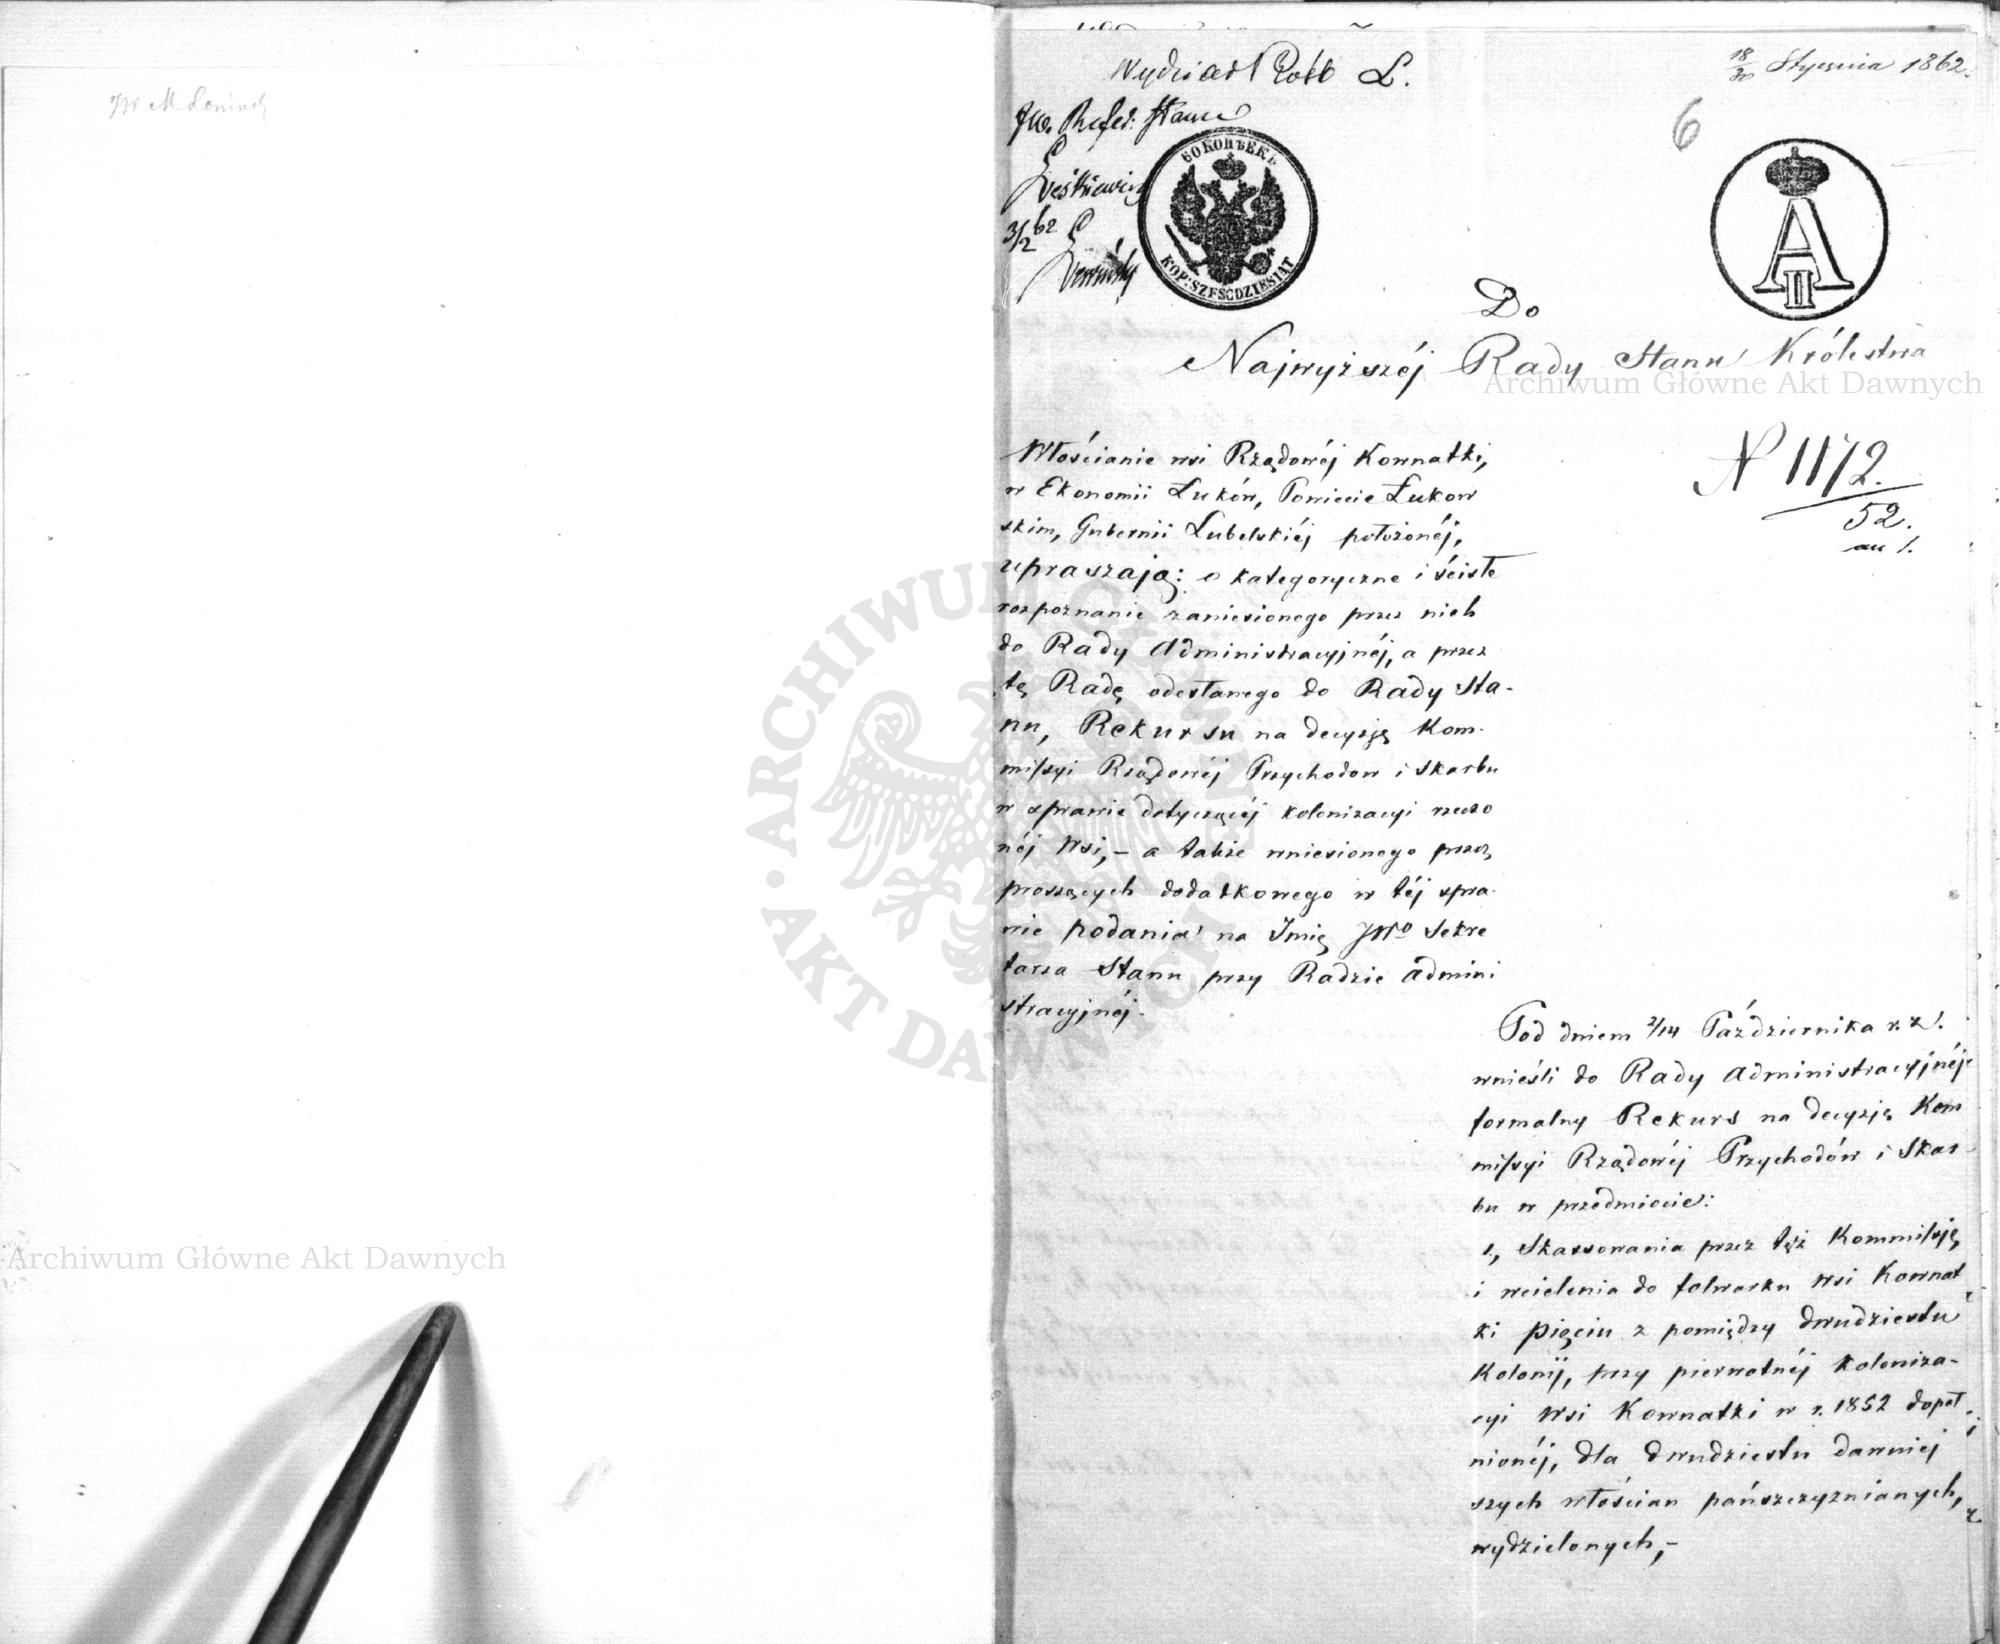 JW M
Wydział L.
18/30 Stycznia 1862.
JW. Refer. Stanu
6
3/2 62
60 КОПѢЕКЪ
KOP: SZEŚĆDZIESIĄT
A II
Do
Najwyższéj Rady Stanu Królestwa
Archiwum Główne Akt Dawnych
N 1172.
52.
Włościanie wsi Rządowéj Kownatki,
w Ekonomii Łuków, Powiecie Łukow
skim, Gubernii Lubelskiéj położonéj,
upraszają: o kategoryczne i ściste
rozpoznanie zaniesionego przez nich
do Rady Administracyjnéj, a przez
tę Radę odesłanego do Rady Sta-
nu, Rekursu na decyzję Kom-
missyi Rządowéj Przychodow i Skarbu
w sprawie dotyczącéj kolonizacyi rzeczo
néj Wsi, – a także wniesionego przez
proszących dodatkowego w téj spra-
wie podania na Imię JWo Sekre
tarza Stanu przy Radzie Admini
stracyjnéj.
Pod dniem 2/14 Października r. z.
wnieśli do Rady Administracyjnéj
formalny Rekurs na decyzję Kom
missyi Rządowéj Przychodów i Skar-
bu w przedmiocie:
1, Skassowania przez tęż Kommissję,
i wcielenia do folwarku wsi Kownat
ki pięciu z pomiędzy dwudziestu
Kolonij, przy pierwotnéj koloniza-
cyi Wsi Kownatki w r. 1852 dopeł
nionéj, dla dwudziestu dawniej
szych włościan pańszczyznianych,
wydzielonych, –
ARCHIWUM GŁÓWNE · AKT DAWNYCH ·
Archiwum Główne Akt Dawnych